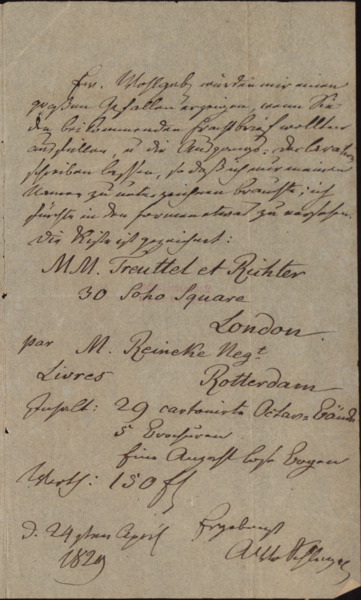 Ew. Wohlgeb. würden mir einen
großen Gefallen erzeigen, wenn Sie
den beikommenden Frachtbrief wollten
ausfüllen, u die Ausgangs-Declaration
schreiben lassen, so daß ich nur meinen
Namen zu unterzeichnen brauchte; ich
fürchte in den Formen etwas zu versehen.
Die Kiste ist gezeichnet:
MM. Treuttel et Richter
30 Soho Square
London
par M. Reineke Negt.
Livres Rotterdam
Inhalt: 29 cartonirte Octav-Bände
5 Brochüren
Eine Anzahl lose Bogen
Werth: 150 fl
d. 24sten April Ergebenst
1829 AWvSchlegel